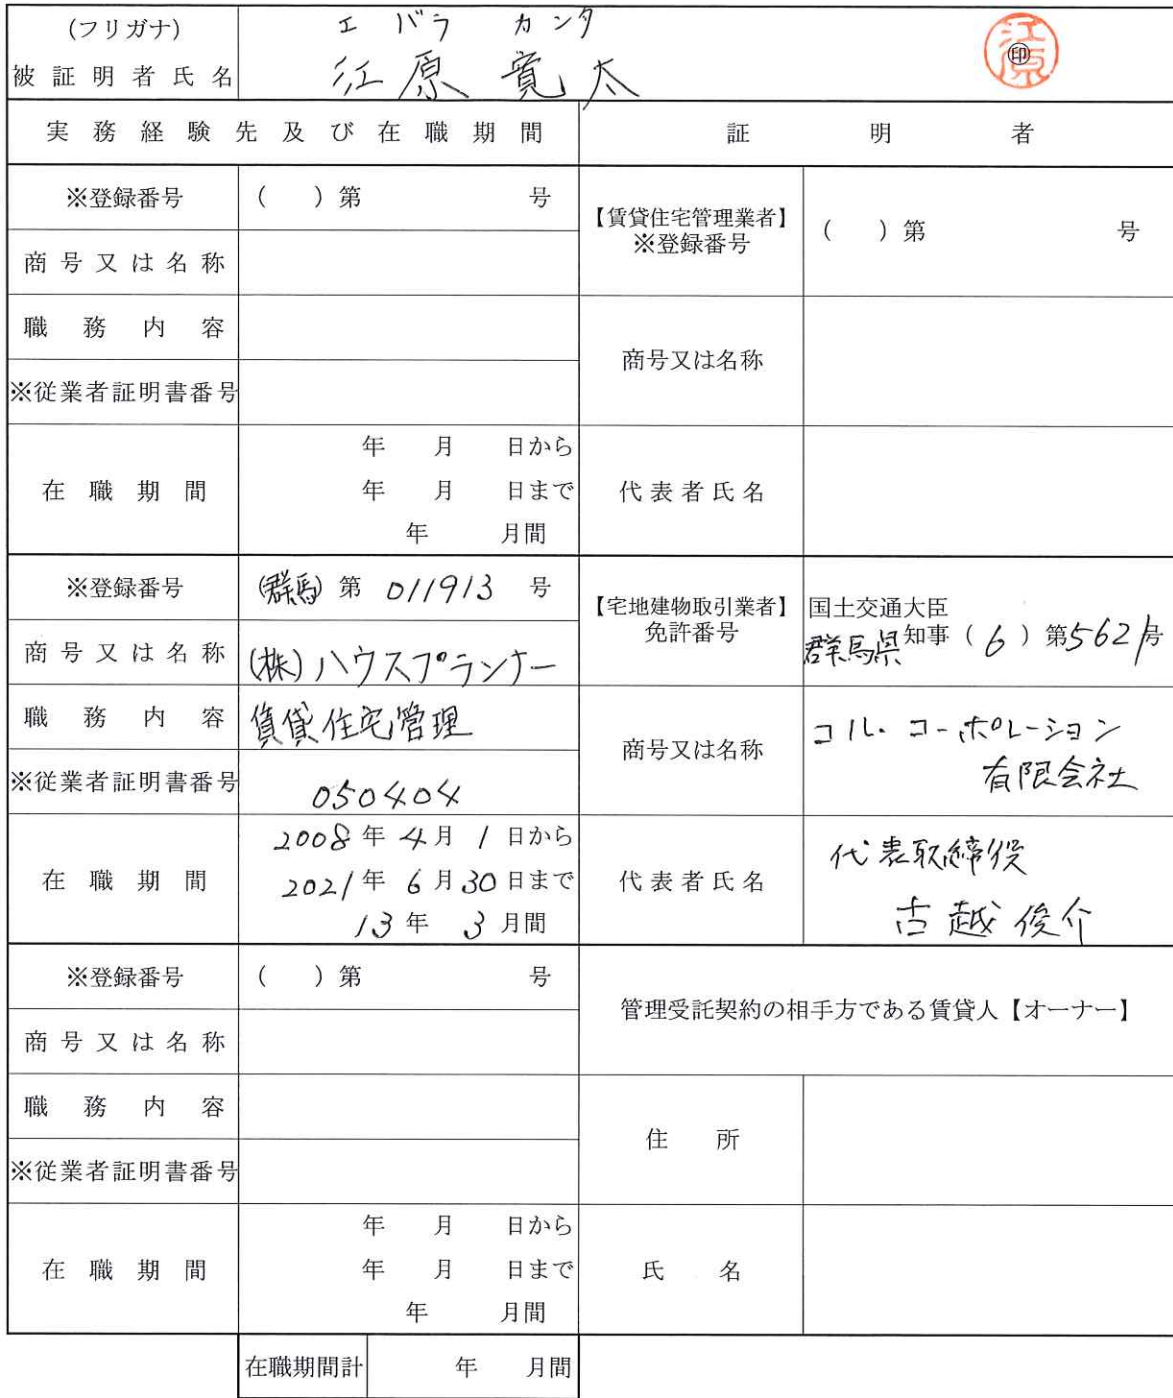 (フリガナ) エバラ カンタ
被証明者氏名 江原 寛太 ㊞ 江原
実務経験先及び在職期間 証明者
※登録番号 ( ) 第 号
【賃貸住宅管理業者】
※登録番号 ( ) 第 号
商号又は名称
職務内容
商号又は名称
※従業者証明書番号
年 月 日から
在職期間 年 月 日まで
年 月間
代表者氏名
※登録番号 (群馬) 第 011913 号
【宅地建物取引業者】
免許番号
国土交通大臣
群馬県知事 (6) 第5621号
商号又は名称 (株)ハウスプランナー
職務内容 賃貸住宅管理
商号又は名称 コル・コーポレーション
有限会社
※従業者証明書番号 050404
2008年 4月 1日から
在職期間 2021年 6月30日まで
13年 3月間
代表者氏名 代表取締役
古越俊介
※登録番号 ( ) 第 号
管理受託契約の相手方である賃貸人【オーナー】
商号又は名称
職務内容
住所
※従業者証明書番号
年 月 日から
在職期間 年 月 日まで
年 月間
氏名
在職期間計 年 月間